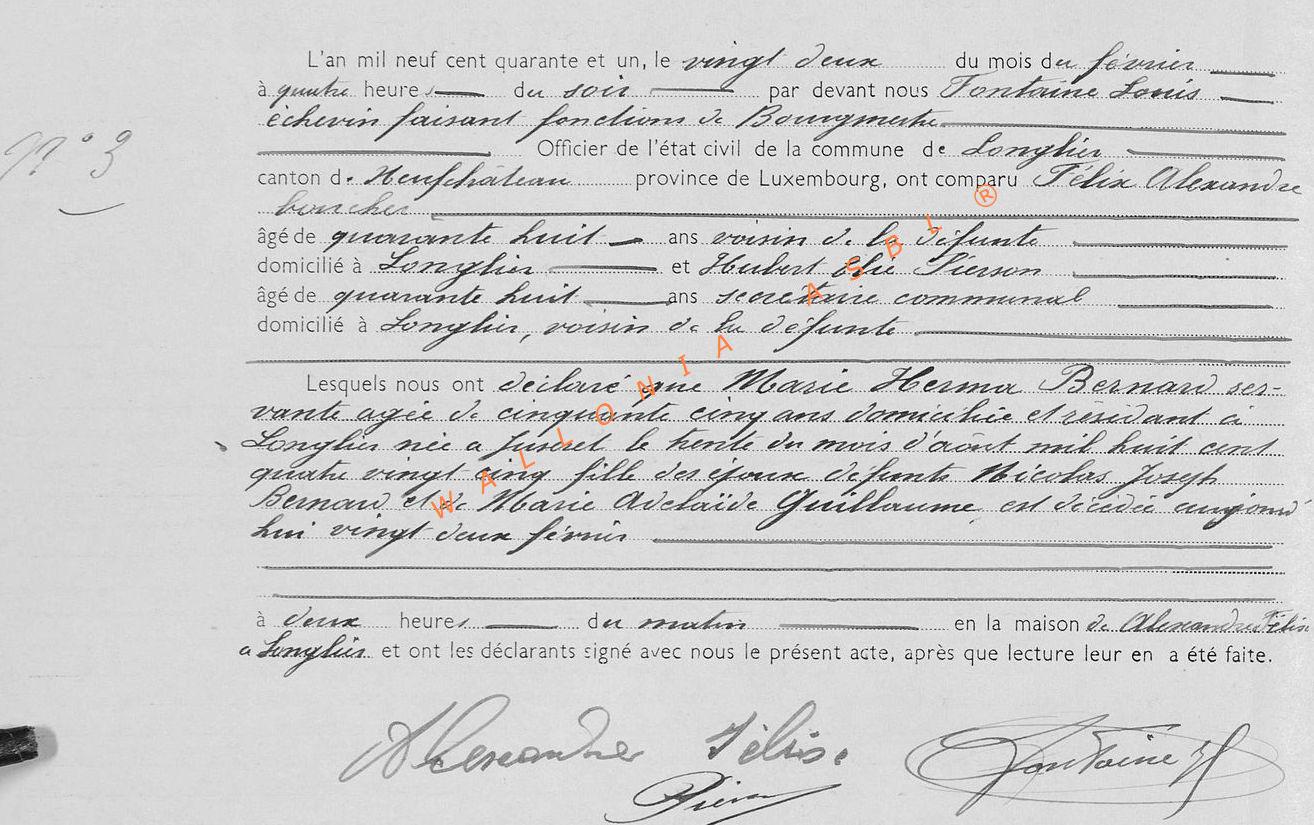 L'an mil neuf cent quarante et un, le vingt deux du mois du février
à quatre heures du soir par devant nous Fontaine Louis
échevin faisant fonctions de Bourgmestre
N° 3
Officier de l'état civil de la commune de Longlier
canton de Neufchâteau province de Luxembourg, ont comparu Félix Alexandre
boucher
âgé de quarante huit ans voisin de la défunte
domicilié à Longlier et Hubert Elie Pierson
âgé de quarante huit ans secrétaire communal
domicilié à Longlier, voisin de la défunte
Lesquels nous ont déclaré que Marie Herma Bernard ser-
vante agée de cinquante cinq ans domiciliée et résidant à
Longlier née a Juseret le trente du mois d'août mil huit cent
quatre vingt cinq fille des époux défunts Nicolas Joseph
Bernard et de Marie Adelaïde Guillaume est décédée aujourd
hui vingt deux février
à deux heures du matin en la maison de Alexandre Félix
a Longlier et ont les déclarants signé avec nous le présent acte, après que lecture leur en a été faite.
Alexandre Félix
Fontaine
Pierson
WALLONIA ASBL ®